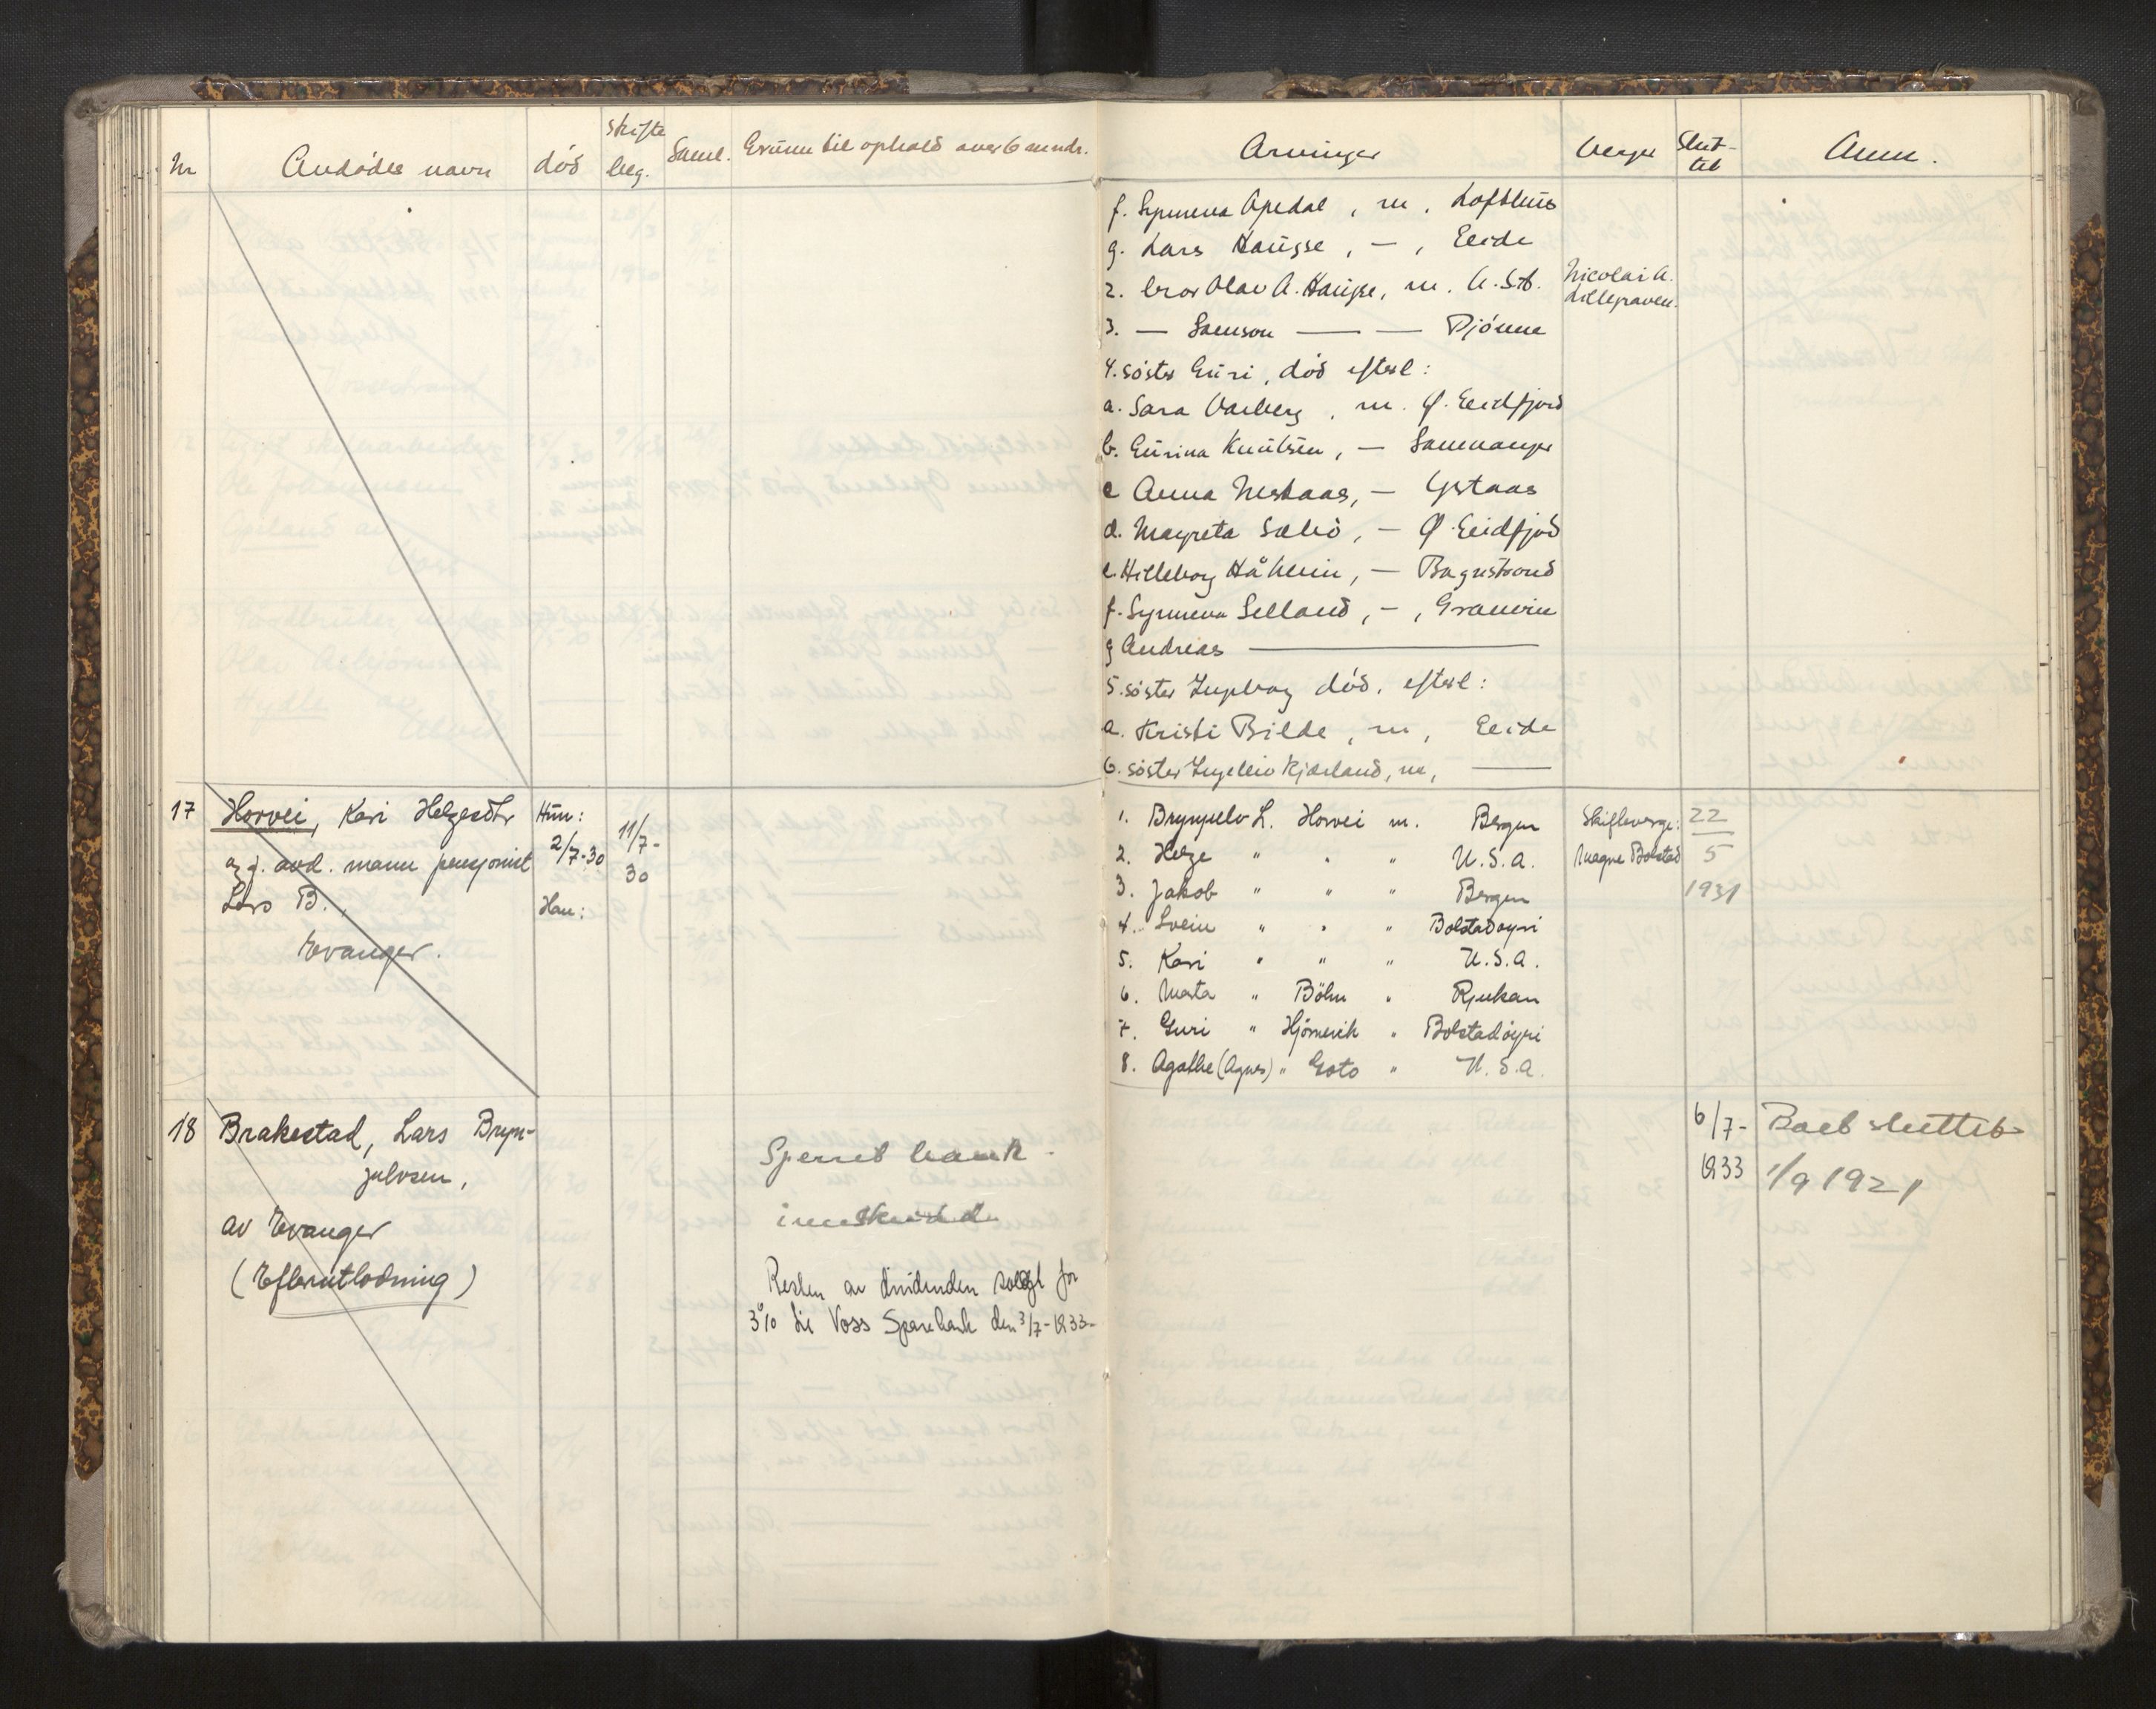 Nr Avdødes navn død skifte beg. Saml. Grunn til ophold over 6 mndr. Arvinger Verger Slut-tet Anm.
f. Synneva Apedal, m, Lofthus
g. Lars Haugse, — , Eeide
2. bror Olav A. Haugse, m. A. St. Nicolai A.
Lillegraven.
3. — Samson — — Djönne
4. söster Guri, död efterl:
a. Sara Varberg, m. Ø. Eidfjord
b. Gurina Knutsen, — Samnanger
c Anna Neshaas, — Ystaas
d. Magreta Sæbö, — Ø. Eidfjord
e. Hilleborg Håheim, — Bagnstrond
f. Synneva Selland, — , Granvin
g Andreas ———
5. söster Ingeborg död, efterl:
a. Kristi Bilde, m, Eeide
6. söster Ingeleiv Kjærland, m, ———
17 Horvei, Kari Helgesdtr
og f. avd. mann pensjonist
Lars B.,
Evanger.
Hun:
2/7-30
Han:
11/7-
30
1. Brynjulv L. Horvei m. Bergen
2. Helge " " " U.S.A.
3. Jakob " " " Bergen
4. Svein " " " Bolstadøyri
5. Kari " " " U.S.A.
6. Marta " Böhn " Rjukan
7. Guri " Hjörnevik " Bolstadöyri
8. Agathe (Agnes) " Goto " U.S.A.
Skifteverge:
Magne Bolstad
22
5
1931
18 Brakestad, Lars Bryn-
julvsen,
av Evanger
(Efterutlodning)
Sperret bank-
innskudd
Resten av dividenden solgt for
3% til Voss Sparebank den 3/7-1933-
6/7-
1933
Boet sluttet
1/9 1921